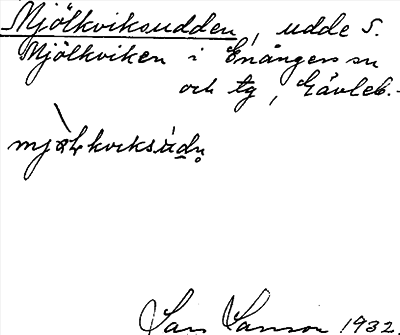 Mjölkviksudden, udde S.
Mjölkviken i Enångers sn
och tg, Gävleb.-
Lars Larsson 1932.